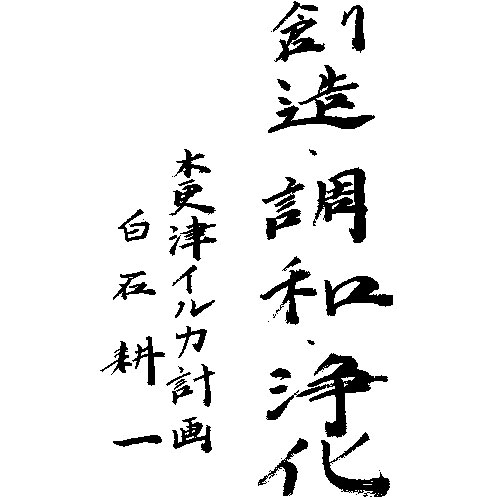 創造、調和、浄化
木更津イルカ計画
白石耕一